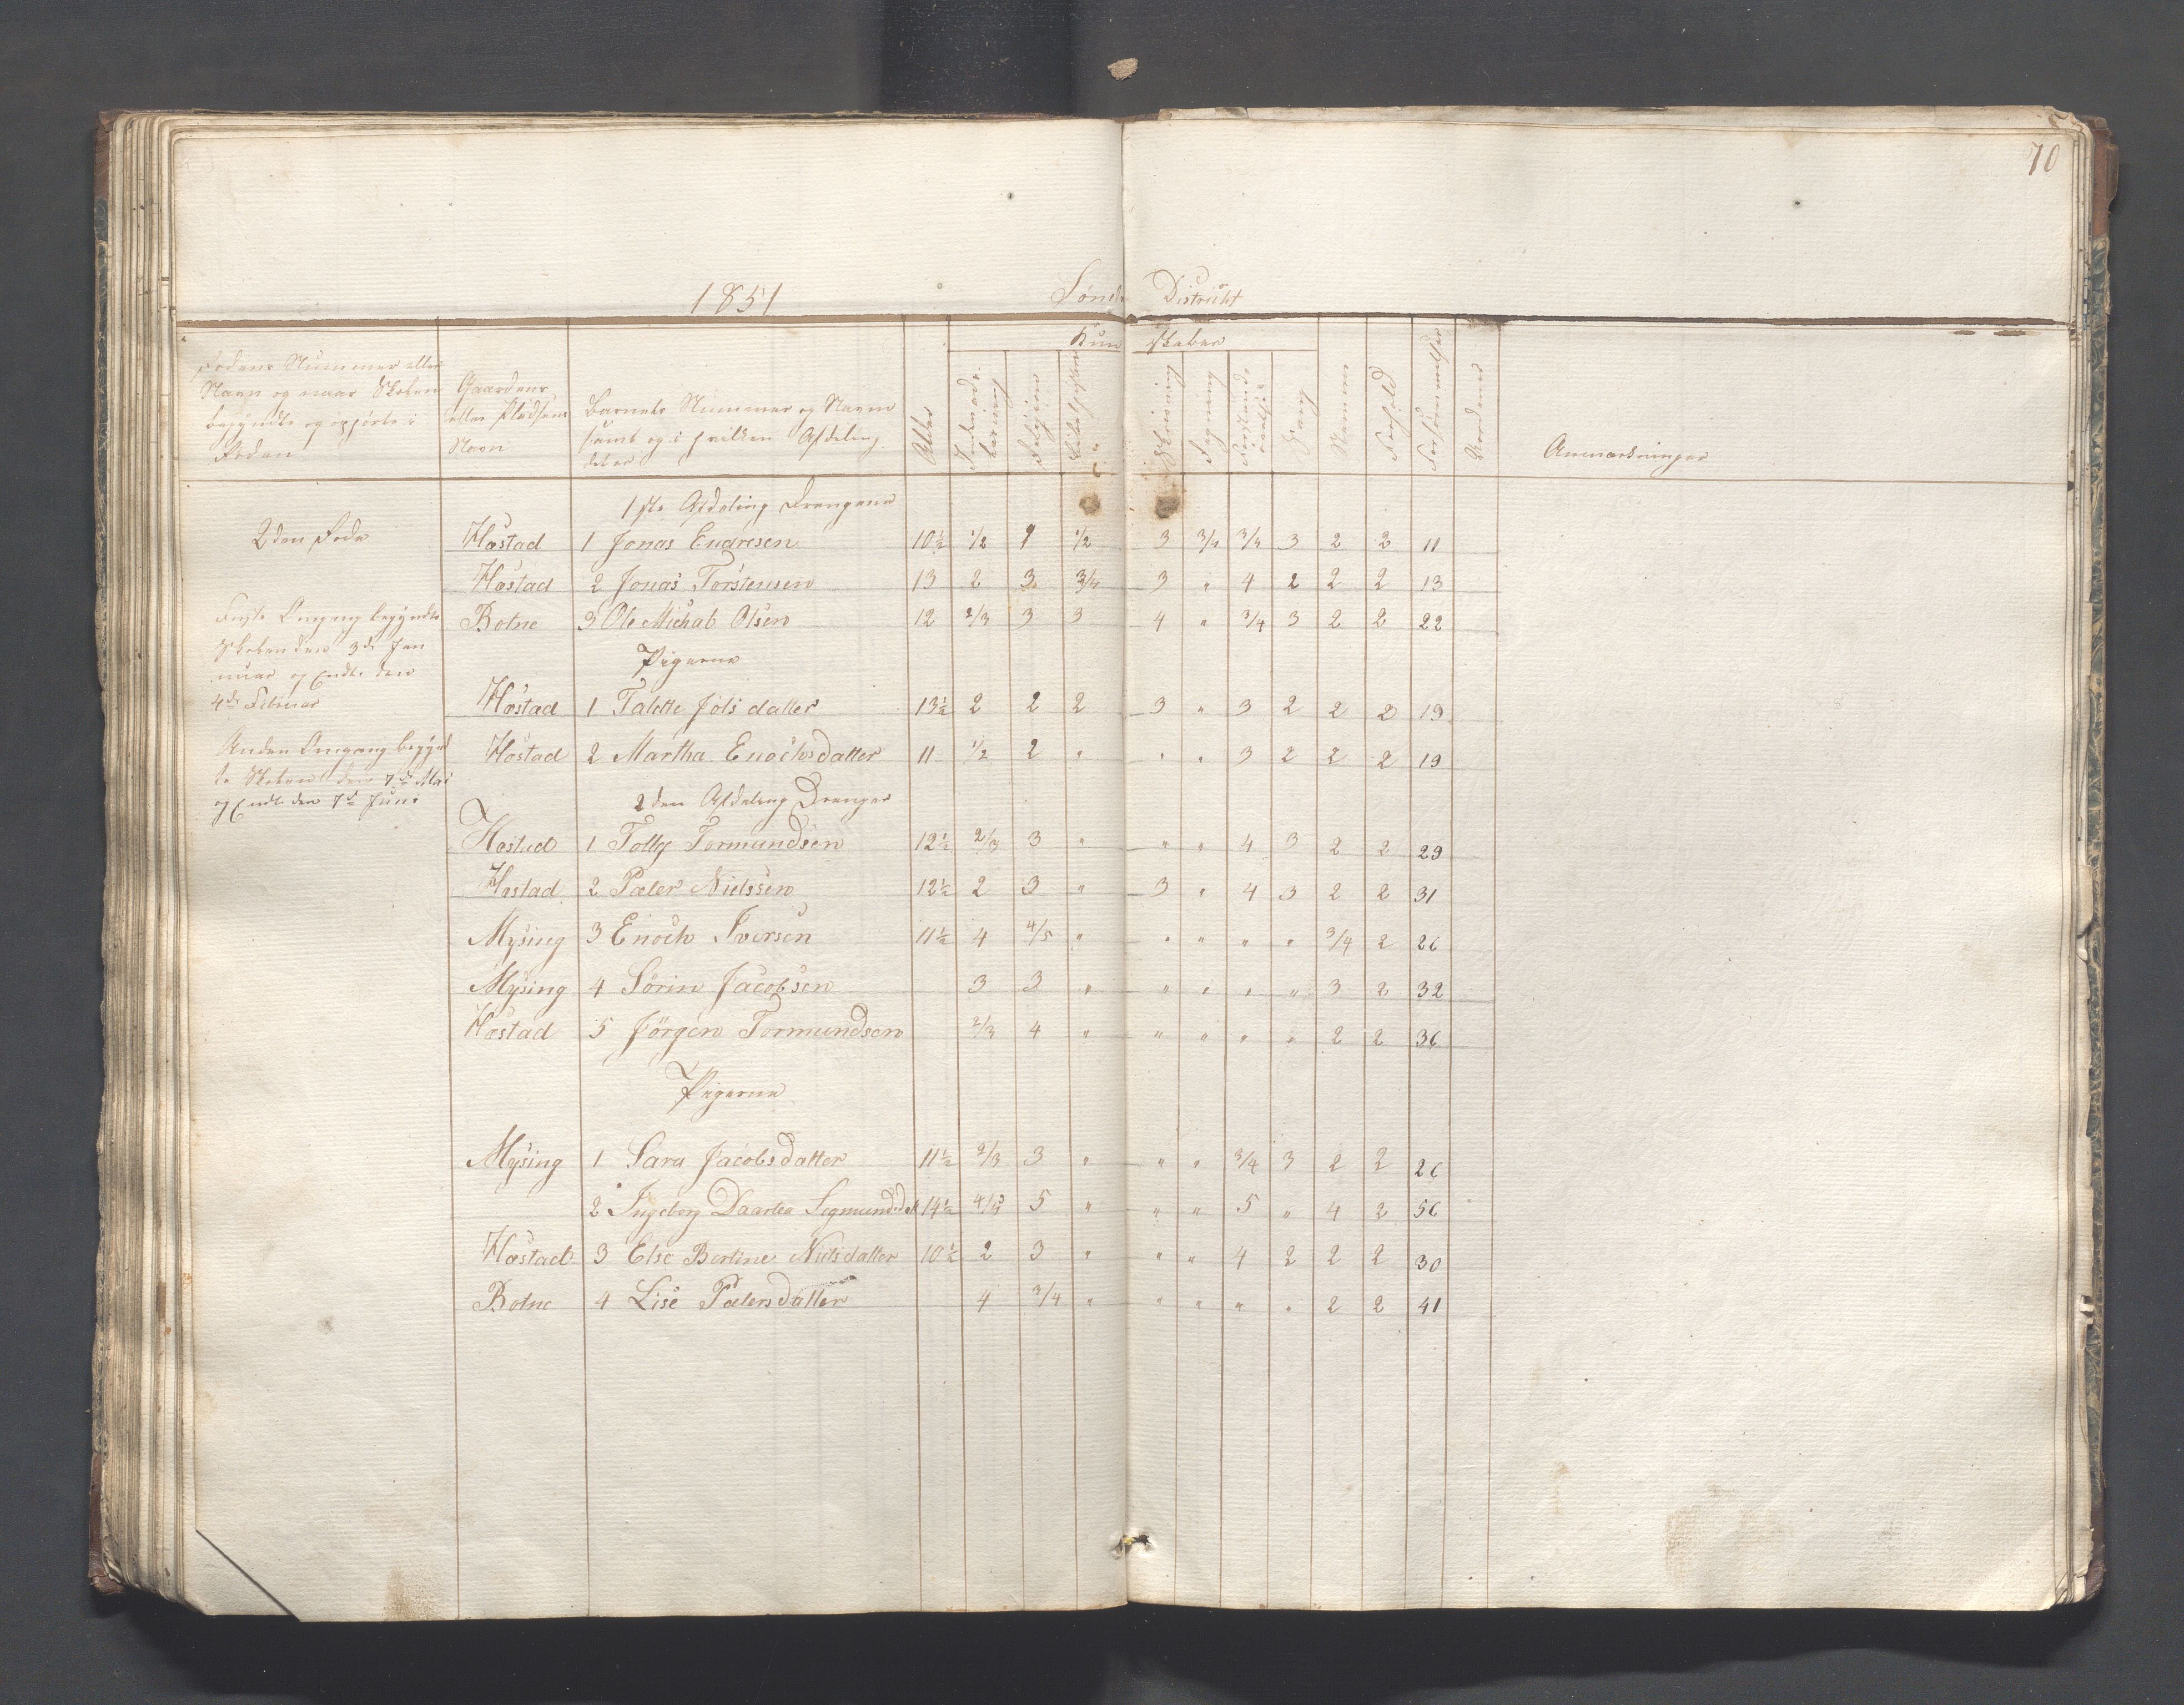 70
1851 Sönd District
Kun skaber
Rodens Nummer eller
Navn og naar Skolen
begyndte og ophørte i
Roden
Gaardens
eller Pladsens
Navn
Barnets Nummer og Navn
samt og i hvilken Afdeling
det er
Alder
Religion
Skrivning
Regning
Sang
Nemme
Forhold
Forsømmelser
Anmærkninger
1ste Afdeling Drengene
2den Rode
Høstad 1 Jonas Enaresen 10½ 1/2 1 1/2 3 3/4 3/4 3 2 2 11
Høstad 2 Jonas Torstensen 13 2 3 3/4 3 " 4 2 2 2 13
Botne 3 Ole Michal Olsen 12 2/3 3 3 4 " 3/4 3 2 2 22
Første Omgang begyndte
Skolen den 3de Jan
uar og Endte den
4de Februar
Pigerne
Høstad 1 Talette Jols datter 13½ 2 2 2 3 " 3 2 2 2 19
Anden Omgang begynd
te Skolen den 7de Mai
og Endte den 7de Juni
Høstad 2 Martha Enochsdatter 11 1/2 2 " " " 3 2 2 2 19
2den Afdeling Drenger
Høstad 1 Tollg Tormundsen 12½ 2/3 3 " " " 4 3 2 2 29
Høstad 2 Pæler Nielssen 12½ 2 3 " 3 " 4 3 2 2 31
Mysing 3 Enoch Iversen 11½ 4 4/5 " " " " " 3/4 2 26
Mysing 4 Sörin Jacobsen 3 3 " " " " " 3 2 32
Høstad 5 Jörgen Tormundsen 2/3 4 " " " " " 2 2 36
Pigerne
Mysing 1 Sara Jacobsdatter 11½ 2/3 3 " " " 3/4 3 2 2 26
2 Ingeborg Daartea Segmundsdat 14½ 4/5 5 " " " 5 " 4 2 56
Høstad 3 Else Bertine Nielsdatter 10½ 2 3 " " " 4 2 2 2 30
Botne 4 Lise Pælersdatter 4 3/4 " " " " " 2 2 41